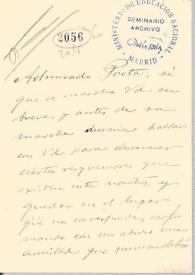 MINISTERIO DE EDUCACIÓN NACIONAL
SEMINARIO
ARCHIVO
MADRID
2056
Admirado Poeta: sé
que se marcha Vd en
breve y antes de su
marcha desearia hablar
con Vd para desvanecer
ciertos resquemores que
existen entre nosotros, y
quedar en el lugar
que nos corresponde
con un abrazo una
amistad que